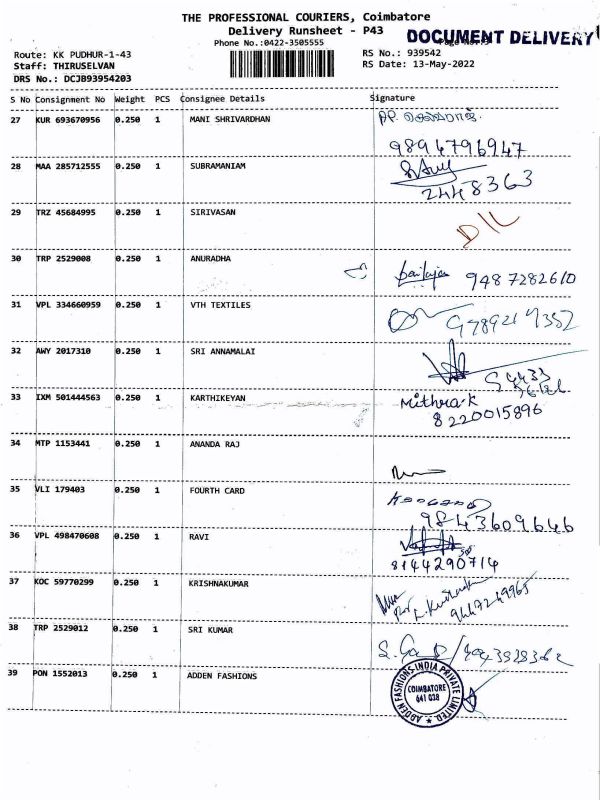 THE PROFESSIONAL COURIERS, Coimbatore
Delivery Runsheet - P43
DOCUMENT DELIVERY
Phone No.:0422-3505555
Route: KK PUDHUR-1-43
RS No.: 939542
Staff: THIRUSELVAN
RS Date: 13-May-2022
DRS No.: DCJB93954203
S No Consignment No Weight PCS Consignee Details Signature
27 KUR 693670956 0.250 1 MANI SHRIVARDHAN
9894796947
28 MAA 285712555 0.250 1 SUBRAMANIAM
2448363
29 TRZ 45684995 0.250 1 SIRIVASAN
30 TRP 2529008 0.250 1 ANURADHA
9487282610
31 VPL 334660959 0.250 1 VTH TEXTILES
32 AWY 2017310 0.250 1 SRI ANNAMALAI
33 IXM 501444563 0.250 1 KARTHIKEYAN Mithra.K
8220015896
34 MTP 1153441 0.250 1 ANANDA RAJ
35 VLI 179403 0.250 1 FOURTH CARD
9843609646
36 VPL 498470608 0.250 1 RAVI
8144290714
37 KOC 59770299 0.250 1 KRISHNAKUMAR
38 TRP 2529012 0.250 1 SRI KUMAR
39 PON 1552013 0.250 1 ADDEN FASHIONS
ADDEN FASHIONS INDIA PRIVATE LIMITED
COIMBATORE
641 038